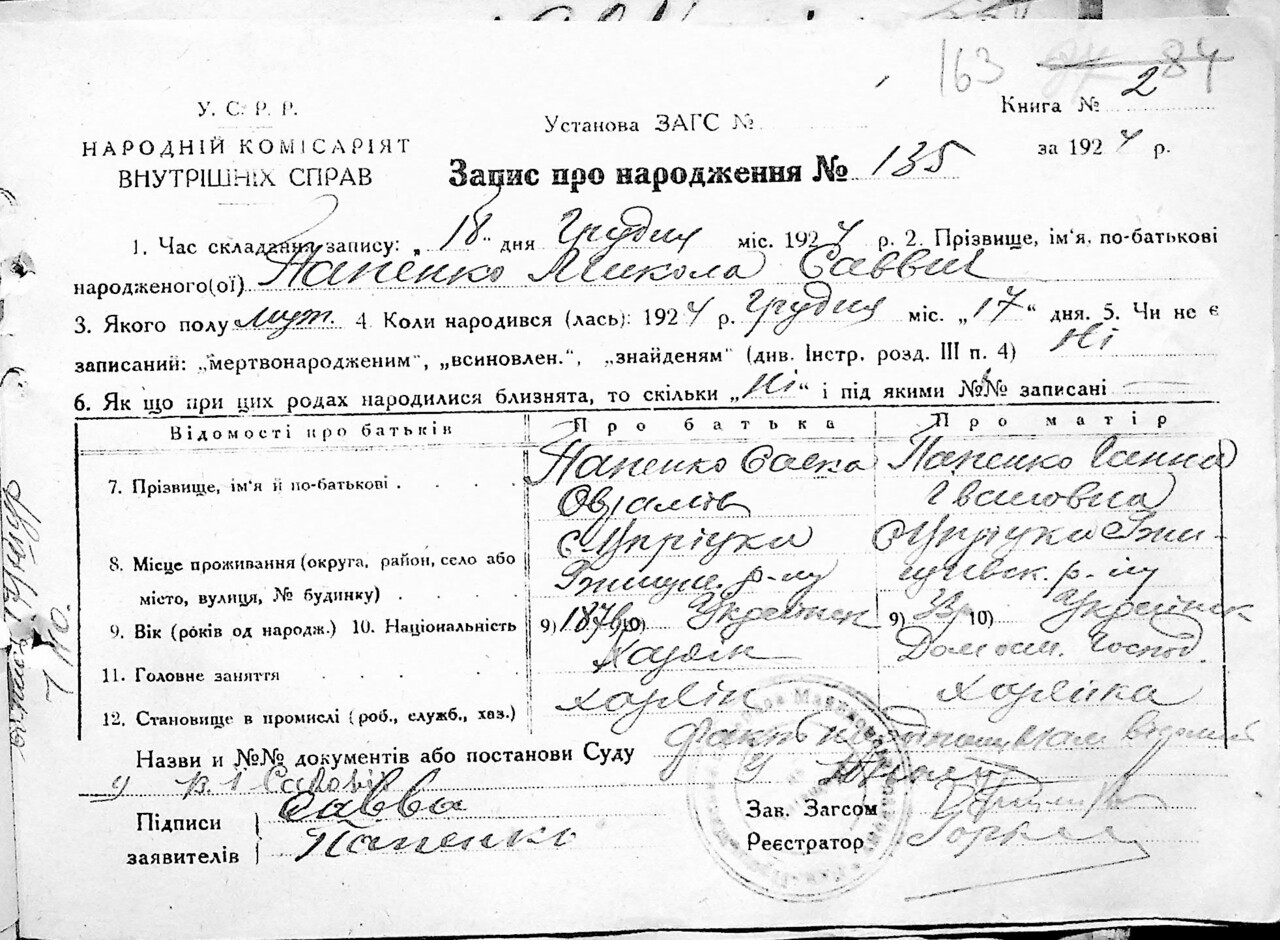 163 84
У. С. Р. Р.
НАРОДНІЙ КОМІСАРІЯТ
ВНУТРІШНІХ СПРАВ
Установа ЗАГС №
Запис про народження № 135
Книга № 2
за 1924 р.
1. Час складання запису: „18“ дня Грудня міс. 1924 р. 2. Прізвище, ім'я, по-батькові
народженого(ої) Папенко Микола Саввич
3. Якого полу муж. 4. Коли народився (лась): 1924 р. Грудня міс. „17“ дня. 5. Чи не є
записаний: „мертвонародженим“, „всиновлен.“, „знайденям“ (див. Інстр. розд. III п. 4) Ні
6. Як що при цих родах народилися близнята, то скільки „Ні“ і під якими №№ записані
Відомості про батьків Про батька Про матір
7. Прізвище, ім'я й по-батькові Папенко Савка Папенко Ганна
Івановна
8. Місце проживання (округа, район, село або
місто, вулиця, № будинку) р-ну р-ну
9. Вік (років од народж.) 10. Національність 9) 10) Українск 9) 10) Українск
11. Головне заняття Хазяін Домаш. Господ.
12. Становище в промислі (роб., служб., хаз.) хазяін хазяйка
Назви и №№ документів або постанови Суду
Підписи
заявителів
Савва
Папенко
Зав. Загсом
Реєстратор